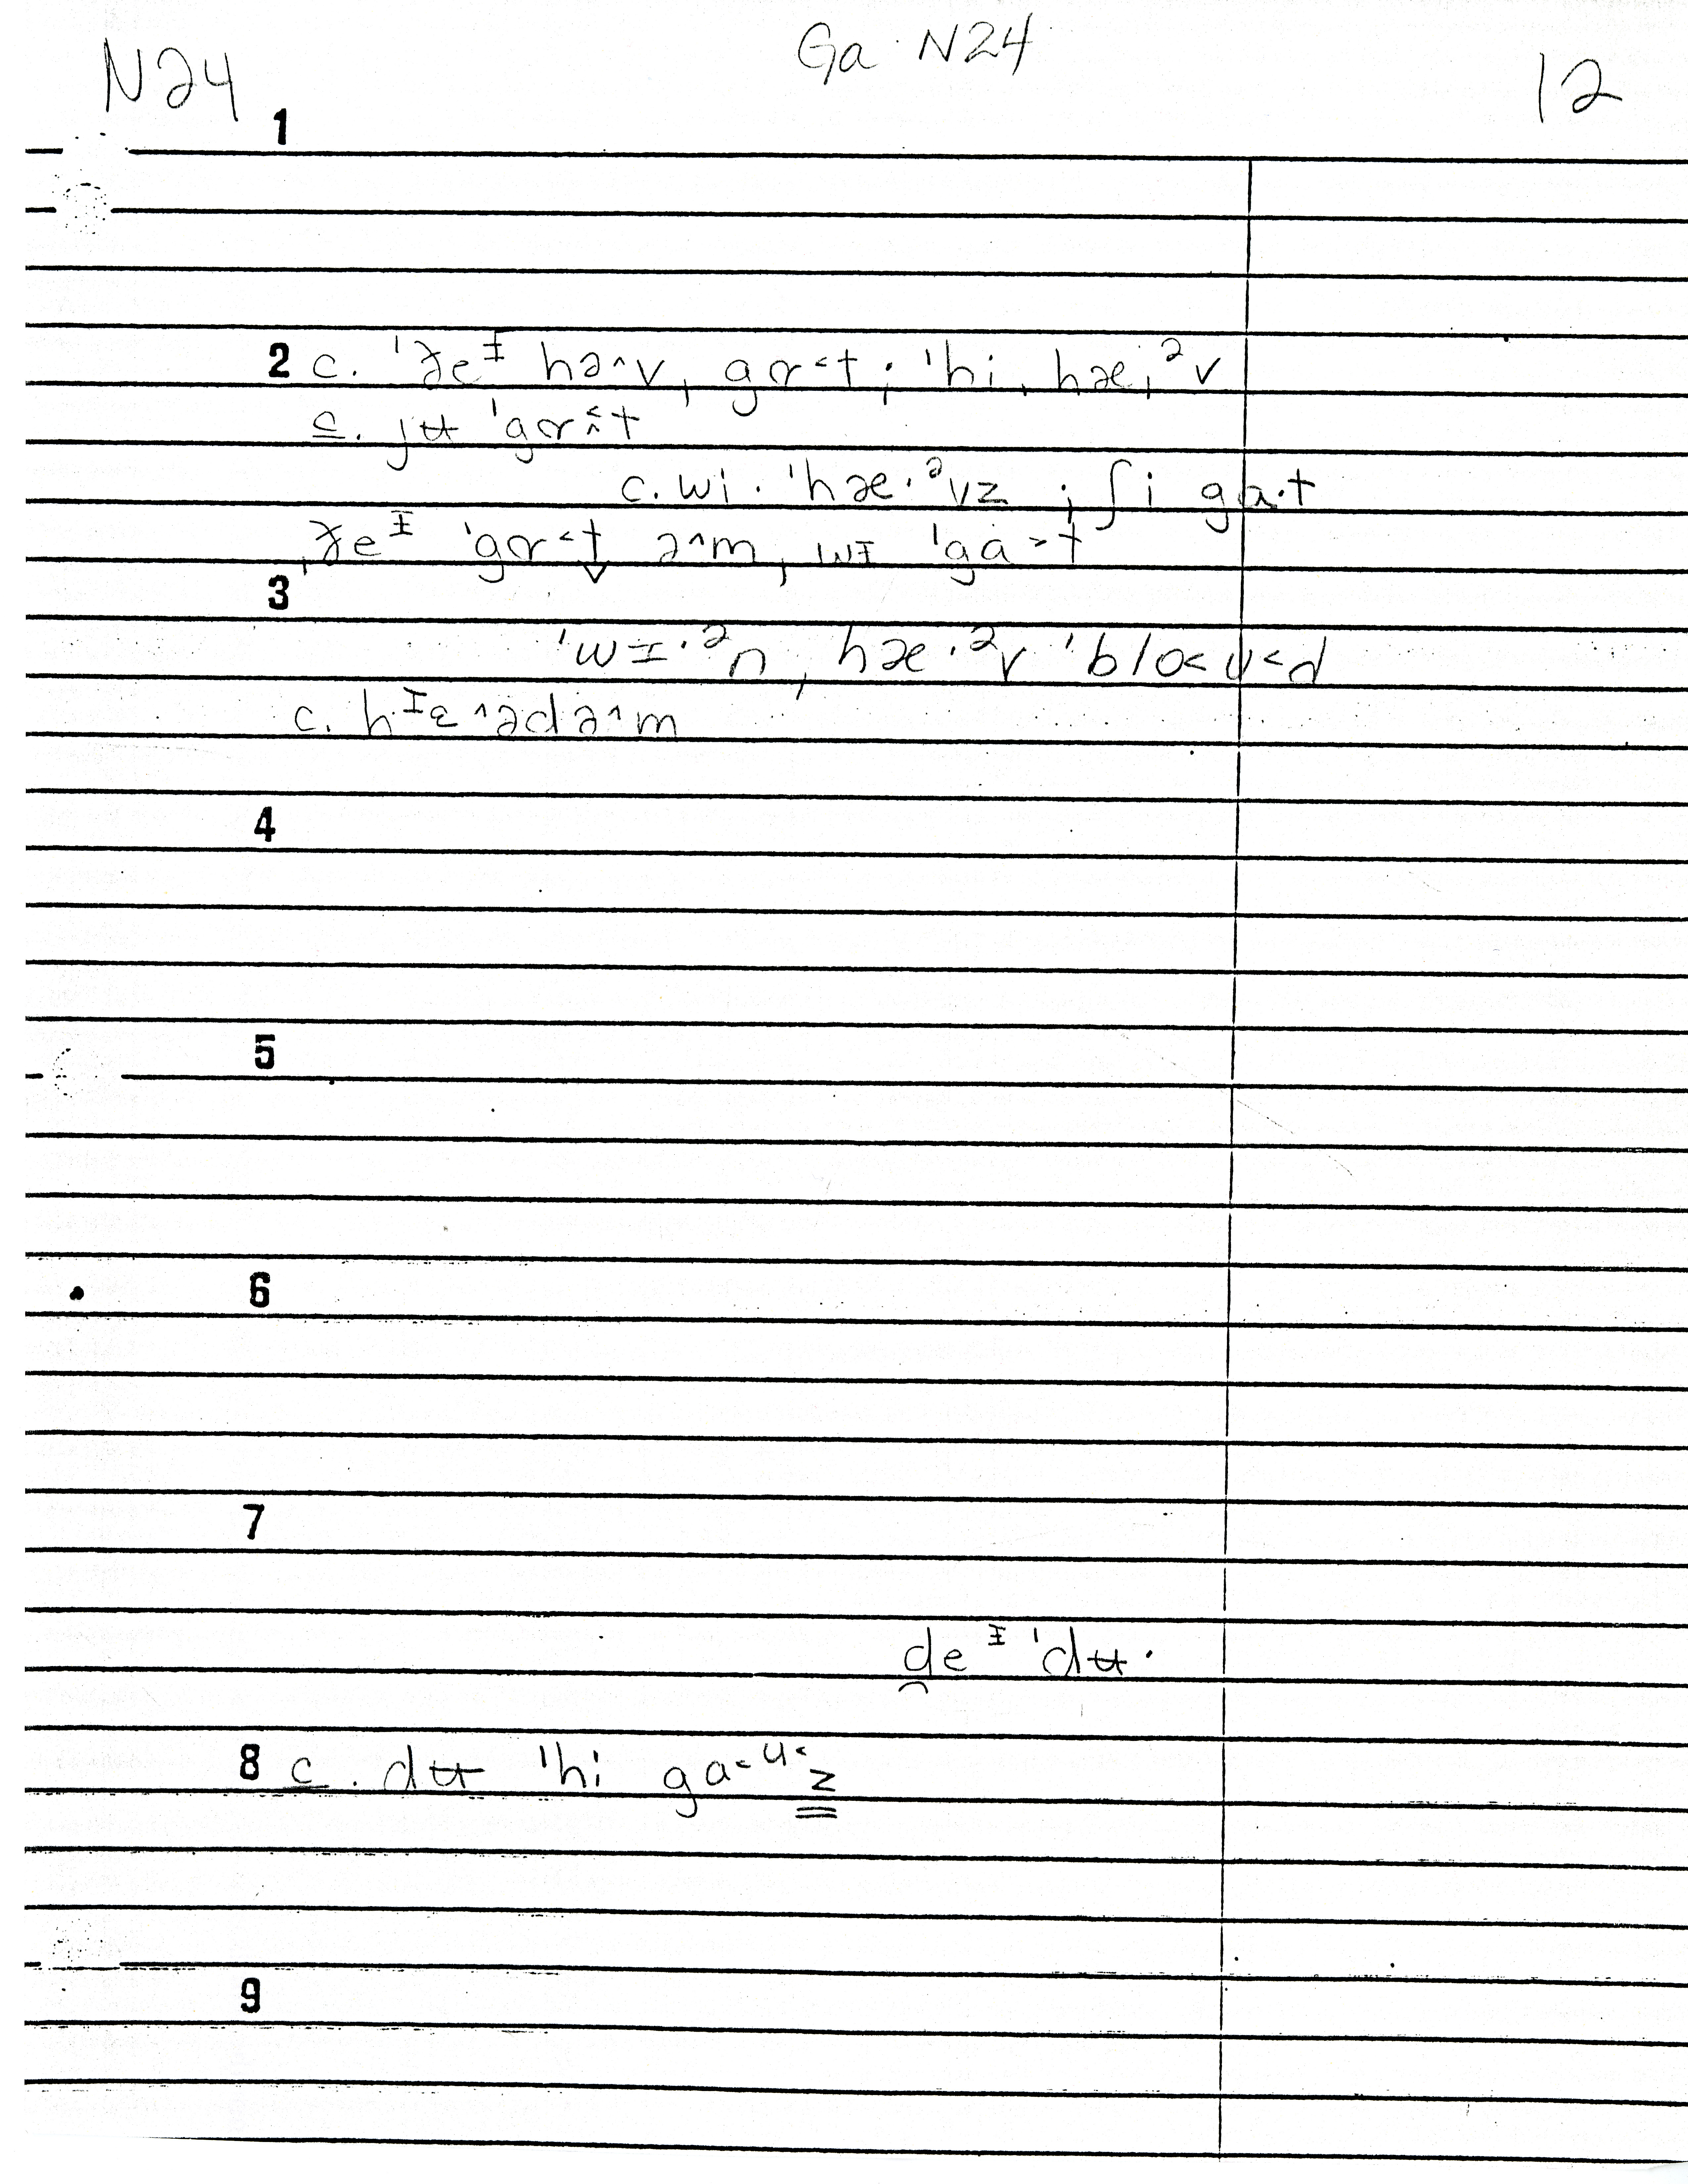 N24 Ga. N24 12
1
2 c. ˈðeᴵ hə^v, gɑ˂t ; ˈhi, hæ·ᵊv
c. jʉ ˈgɑ˂t
c. wi· ˈhæ·ᵊvz ; ʃi gɑ·t
ˌðeᴵ ˈgɑ˂t ə^m, wɪ ˈgɑ˃t
3
ˈwɪ·ᵊn, hæ·ᵊv ˈblo˂ʊ˂d
c. hᴵɛ^ədə^m
4
5
6
7
d̯eᴵ ˈdʉ·
8 c. dʉ ˈhi ga˂ᵘ˂z
9